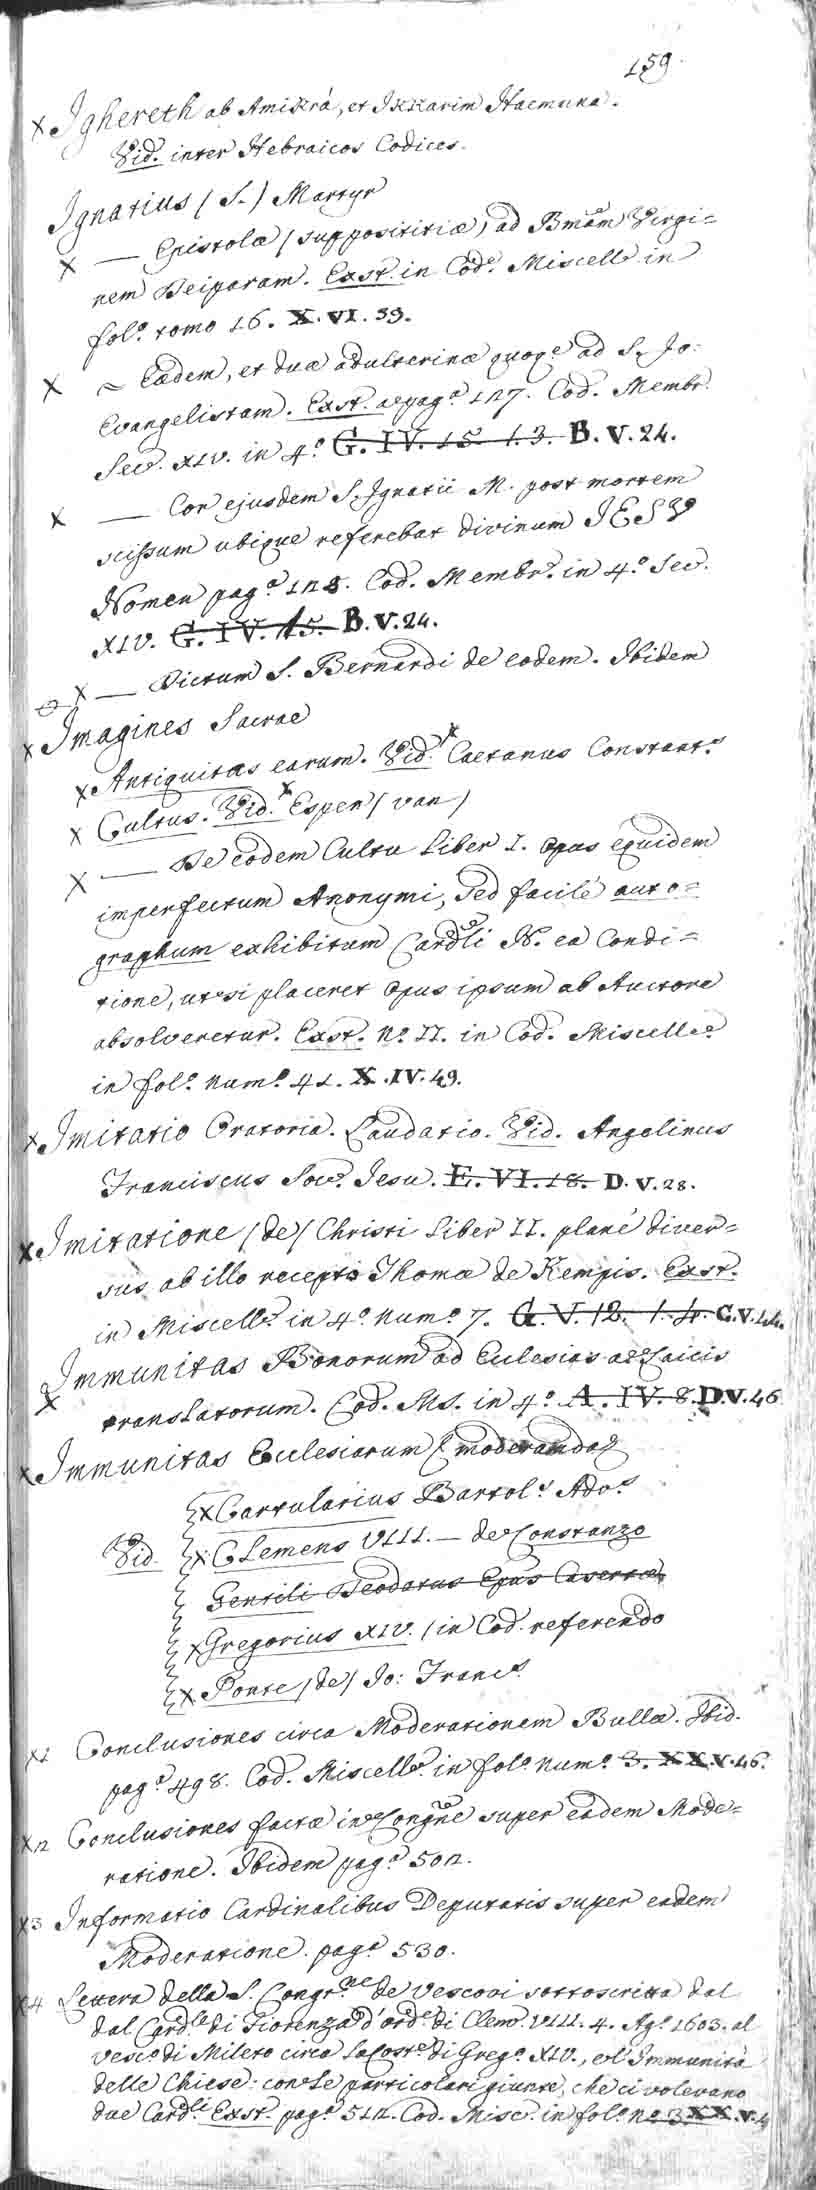 159.
x Ighereth ab Amikrà, et Ikkarim Haemuna.
Vid. inter Hebraicos Codices.
Ignatius (S.) Martyr
x — Epistolæ (supposititiæ) ad Bmam Virgi=
nem Deiparam. Exst. in Cod.e Miscell. in
fol.o tomo 16. X. VI. 39.
x ~ Eædem, et duæ adulterinæ quoq.e ad S. Jo:
Evangelistam. Exst. a pag.a 127. Cod. Membr.
Sec. XIV. in 4.o G. IV. 15. 13. B. V. 24.
x — Cor ejusdem S. Ignatii M. post mortem
scissum ubique referebat divinum JESU
Nomen pag.a 128. Cod. Membr. in 4.o Sec.
XIV. G. IV. 15. B. V. 24.
x — Dictum S. Bernardi de eodem. Ibidem
x Imagines Sacrae
x Antiquitas earum. Vid. x Caetanus Constant.s
x Cultus. Vid. x Espen (van)
x — De eodem Cultu Liber I. Opus equidem
imperfectum Anonymi, sed facilè auto=
graphum exhibitum Cardli N. ea Condi=
tione, ut si placeret Opus ipsum ab Auctore
absolveretur. Exst. No. II. in Cod. Miscell.o
in fol.o num.o 41. X. IV. 49.
x Imitatio Oratoria. Laudatio. Vid. Angelinus
Franciscus Soc. Jesu. E. VI. 18. D. V. 28.
x Imitatione (de) Christi Liber II. planè diver=
sus ab illo recepto Thomæ de Kempis. Exst.
in Miscell. in 4.o num.o 7. G. V. 12. 1. 4. C. V. 14.
Immunitas Bonorum ad Ecclesias a Laicis
x translatorum. Cod. MS. in 4.o A. IV. 8. D. V. 46
x Immunitas Ecclesiarum (moderanda)
x Cartularius Bartol.s Ado.s
Vid. x Clemens VIII. — de Constanzo
Gentili Deodatus Epus Casertæ
x Gregorius XIV. (in Cod. referendo
x Ponte (de) Jo: Franc.s
x1 Conclusiones circa Moderationem Bullæ. Ibid.
pag.a 498. Cod. Miscell. in fol.o num.o 3. XX. V. 46.
x2 Conclusiones factæ in Congne super eadem Mode=
ratione. Ibidem pag.a 502.
x3 Informatio Cardinalibus Deputatis super eadem
Moderatione. pag.a 530.
x4 Lettera della S. Congr.ne de Vescovi sottoscritta dal
dal Card.le di Fiorenza d'ord.e di Clem. VIII. 4. Ag.o 1603. al
Vesc.o di Mileto circa la Cost.e di Greg.o XIV., e l'Immunità
delle Chiese: con le particolari giunte, che ci volevano
due Card.li Exst. pag.a 512. Cod. Misc. in fol.o no. 3. XX. V. 4